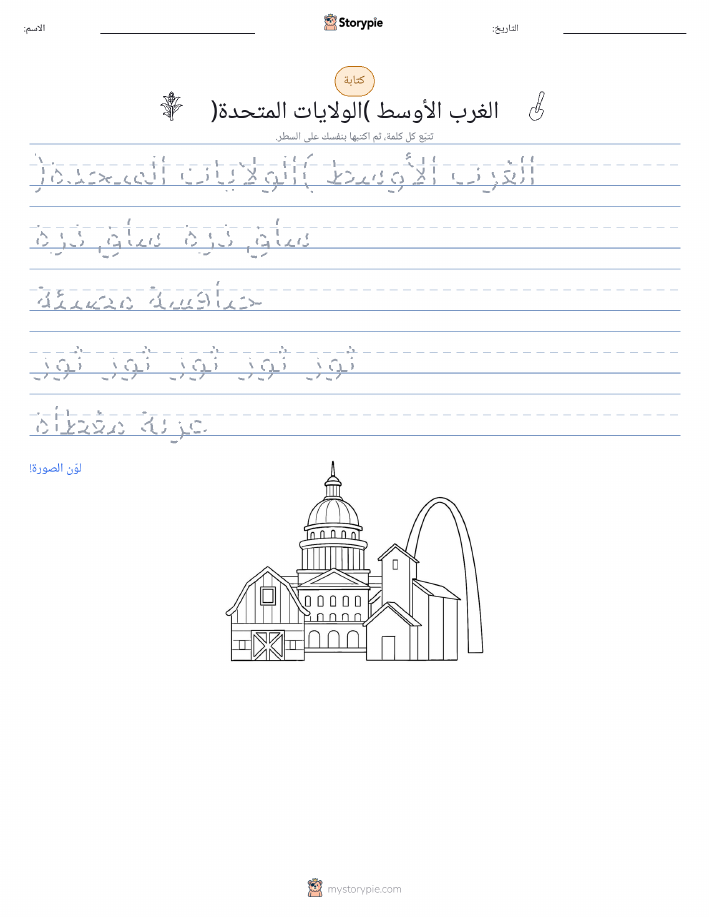 الاسم:
Storypie
التاريخ:
كتابة
الغرب الأوسط (الولايات المتحدة)
تتبّع كل كلمة، ثم اكتبها بنفسك على السطر.
الغرب الأوسط (الولايات المتحدة)
ساق ذرة ساق ذرة
مضيئة
ثور ثور ثور ثور ثور
عربة مغطاة
لوّن الصورة!
mystorypie.com